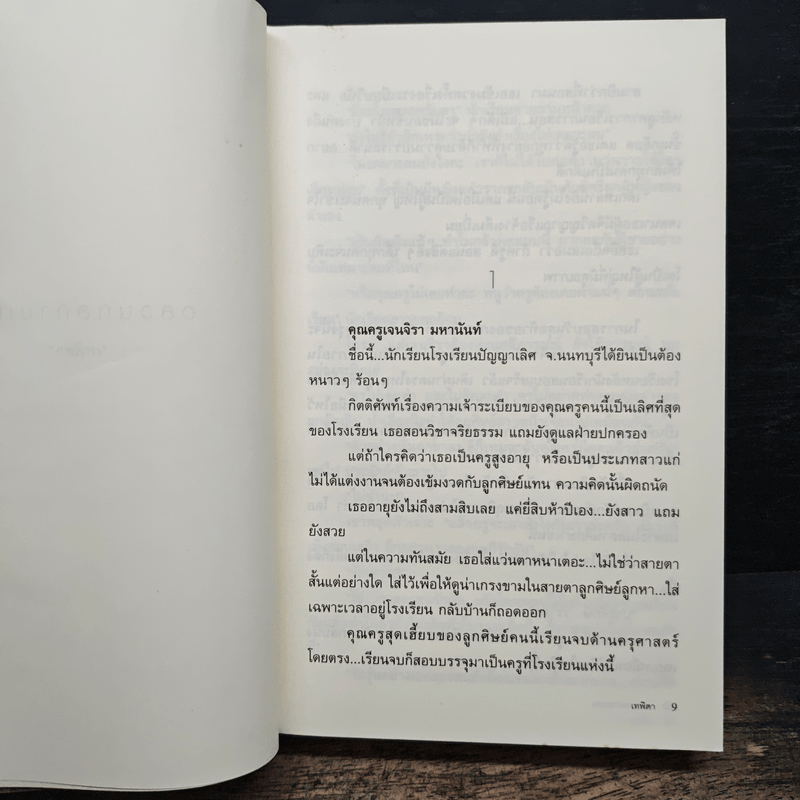 ๑
คุณครูเจนจิรา มหานันท์
ชื่อนี้...นักเรียนโรงเรียนปัญญาเลิศ จ.นนทบุรีได้ยินเป็นต้อง
หนาวๆ ร้อนๆ
กิตติศัพท์เรื่องความเจ้าระเบียบของคุณครูคนนี้เป็นเลิศที่สุด
ของโรงเรียน เธอสอนวิชาจริยธรรม แถมยังดูแลฝ่ายปกครอง
แต่ถ้าใครคิดว่าเธอเป็นครูสูงอายุ หรือเป็นประเภทสาวแก่
ไม่ได้แต่งงานจนต้องเข้มงวดกับลูกศิษย์แทน ความคิดนั้นผิดถนัด
เธออายุยังไม่ถึงสามสิบเลย แค่ยี่สิบห้าปีเอง...ยังสาว แถม
ยังสวย
แต่ในความทันสมัย เธอใส่แว่นตาหนาเตอะ...ไม่ใช่ว่าสายตา
สั้นแต่อย่างใด ใส่ไว้เพื่อให้ดูน่าเกรงขามในสายตาลูกศิษย์ลูกหา...ใส่
เฉพาะเวลาอยู่โรงเรียน กลับบ้านก็ถอดออก
คุณครูสุดเฮี้ยบของลูกศิษย์คนนี้เรียนจบด้านครุศาสตร์
โดยตรง...เรียนจบก็สอบบรรจุมาเป็นครูที่โรงเรียนแห่งนี้
เทพิตา 9